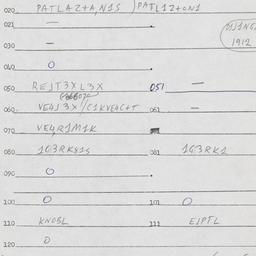 020 PATLAZ+A,N1S )PATL1Z+ON1
021 —
030 — 1912
040 O
050 REJT3XL3X 051 —
060 VE4J3X/C1KVE4C+T 061 —
070 VE4R1M1K
080 1G3RKS1S 081 1G3RK1
090 O
100 O 101 O
110 KNOBL 111 EJPTL
120 O